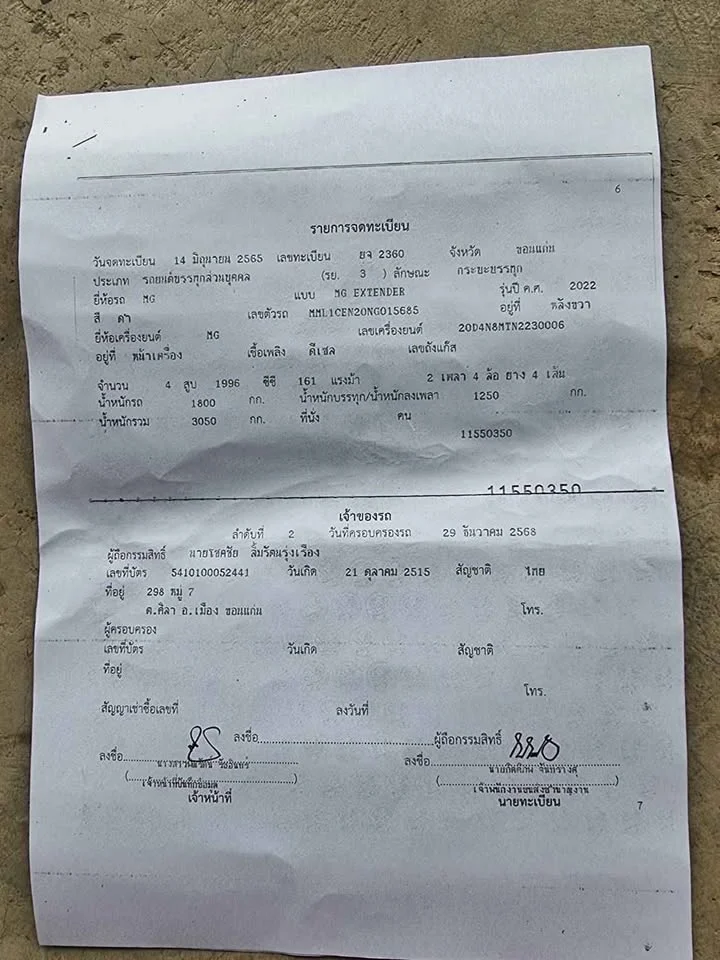 6
รายการจดทะเบียน
วันจดทะเบียน 14 มิถุนายน 2565 เลขทะเบียน ยจ 2360 จังหวัด ขอนแก่น
ประเภท รถยนต์บรรทุกส่วนบุคคล (รย. 3 ) ลักษณะ กระบะบรรทุก
ยี่ห้อรถ MG แบบ MG EXTENDER รุ่นปี ค.ศ. 2022
สี ดำ เลขตัวรถ MML1CEN20NG015685 อยู่ที่ พลังขวา
ยี่ห้อเครื่องยนต์ MG เลขเครื่องยนต์ 20D4N8MTN2230006
อยู่ที่ หน้าเครื่อง เชื้อเพลิง ดีเซล เลขถังแก๊ส
จำนวน 4 สูบ 1996 ซีซี 161 แรงม้า 2 เพลา 4 ล้อ ยาง 4 เส้น
น้ำหนักรถ 1800 กก. น้ำหนักบรรทุก/น้ำหนักลงเพลา 1250 กก.
น้ำหนักรวม 3050 กก. ที่นั่ง คน
11550350
11550350
เจ้าของรถ
ลำดับที่ 2 วันที่ครอบครองรถ 29 ธันวาคม 2568
ผู้ถือกรรมสิทธิ์ นายโชคชัย ลิ้มรัตนรุ่งเรือง
เลขที่บัตร 5410100052441 วันเกิด 21 ตุลาคม 2515 สัญชาติ ไทย
ที่อยู่ 298 หมู่ 7
ต.ศิลา อ.เมือง ขอนแก่น โทร.
ผู้ครอบครอง
เลขที่บัตร วันเกิด สัญชาติ
ที่อยู่
โทร.
สัญญาเช่าซื้อเลขที่ ลงวันที่
ลงชื่อ ผู้ถือกรรมสิทธิ์
ลงชื่อ ลงชื่อ
เจ้าหน้าที่บันทึกข้อมูล เจ้าพนักงานขนส่งชำนาญงาน
เจ้าหน้าที่ นายทะเบียน
7